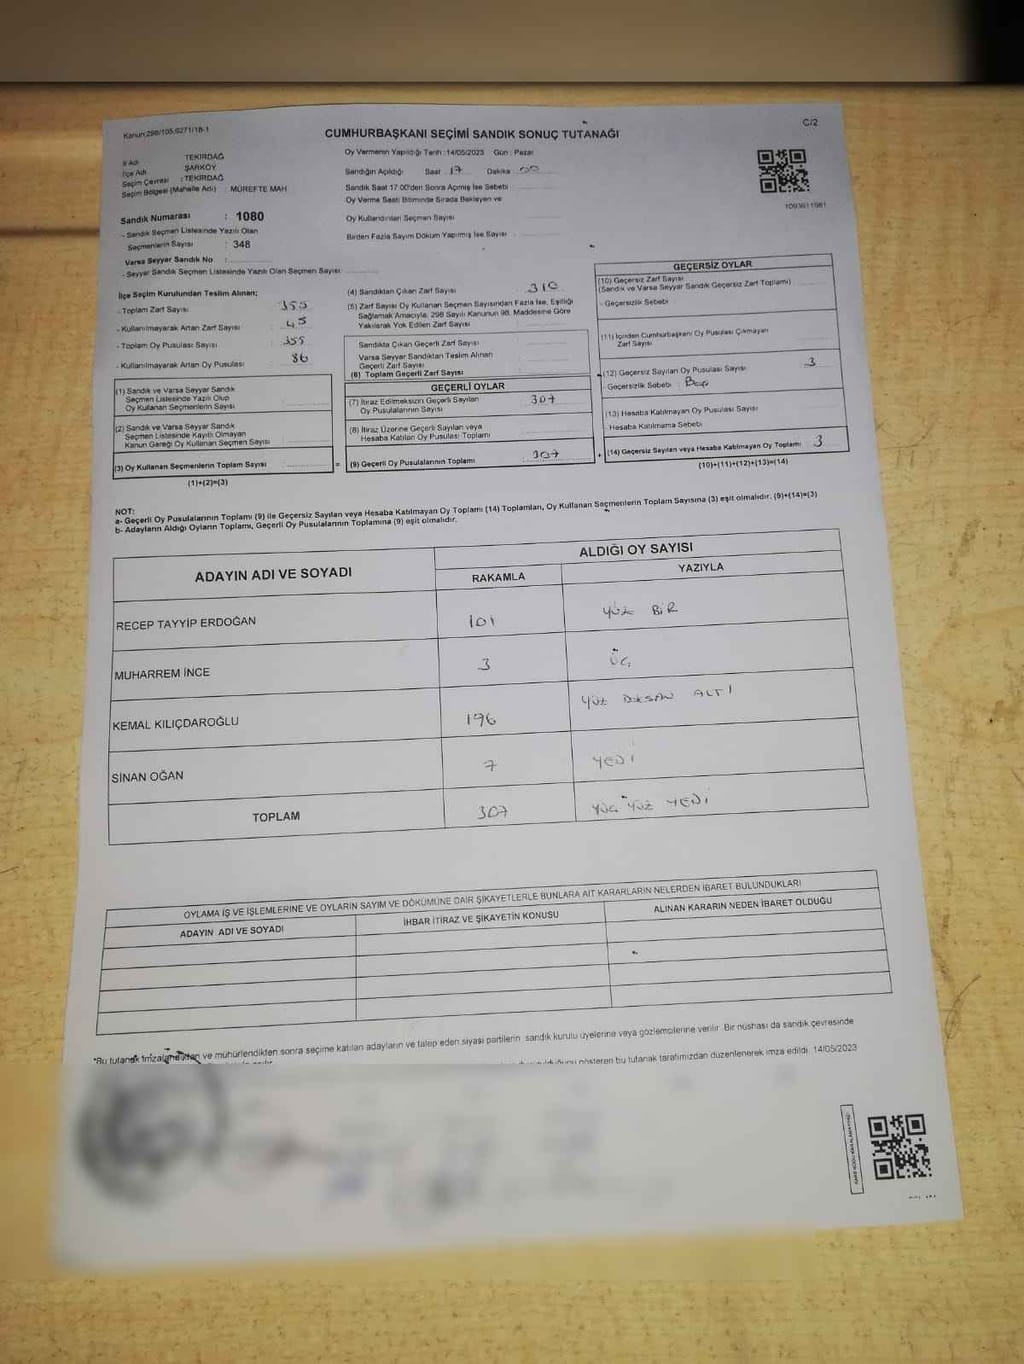 Kanun:298/105,6271/18-1
C/2
CUMHURBAŞKANI SEÇİMİ SANDIK SONUÇ TUTANAĞI
İl Adı TEKİRDAĞ
İlçe Adı ŞARKÖY
Seçim Çevresi : TEKİRDAĞ
Seçim Bölgesi (Mahalle Adı) : MÜREFTE MAH
Sandık Numarası : 1080
- Sandık Seçmen Listesinde Yazılı Olan
Seçmenlerin Sayısı : 348
Varsa Seyyar Sandık No :
- Seyyar Sandık Seçmen Listesinde Yazılı Olan Seçmen Sayısı
Oy Vermenin Yapıldığı Tarih : 14/05/2023 Gün : Pazar
Sandığın Açıldığı Saat 17 Dakika 00
Sandık Saat 17.00'den Sonra Açımış İse Sebebi
Oy Verme Saati Bitiminde Sırada Bekleyen ve
Oy Kullandırılan Seçmen Sayısı
Birden Fazla Sayım Döküm Yapılmış İse Sayısı
İlçe Seçim Kurulundan Teslim Alınan;
- Toplam Zarf Sayısı 355
- Kullanılmayarak Artan Zarf Sayısı 45
- Toplam Oy Pusulası Sayısı 355
- Kullanılmayarak Artan Oy Pusulası 86
(1) Sandık ve Varsa Seyyar Sandık
Seçmen Listesinde Yazılı Olup
Oy Kullanan Seçmenlerin Sayısı
(2) Sandık ve Varsa Seyyar Sandık
Seçmen Listesinde Kayıtlı Olmayan
Kanun Gereği Oy Kullanan Seçmen Sayısı
(3) Oy Kullanan Seçmenlerin Toplam Sayısı
(1)+(2)=(3)
(4) Sandıktan Çıkan Zarf Sayısı 310
(5) Zarf Sayısı Oy Kullanan Seçmen Sayısından Fazla İse, Eşitliği
Sağlamak Amacıyla, 298 Sayılı Kanunun 98. Maddesine Göre
Yakılarak Yok Edilen Zarf Sayısı
Sandıkta Çıkan Geçerli Zarf Sayısı
Varsa Seyyar Sandıktan Teslim Alınan
Geçerli Zarf Sayısı
(6) Toplam Geçerli Zarf Sayısı
GEÇERLİ OYLAR
(7) İtiraz Edilmeksizin Geçerli Sayılan
Oy Pusulalarının Sayısı 307
(8) İtiraz Üzerine Geçerli Sayılan veya
Hesaba Katılan Oy Pusulası Toplamı
= (9) Geçerli Oy Pusulalarının Toplamı 307
GEÇERSİZ OYLAR
(10) Geçersiz Zarf Sayısı
(Sandık ve Varsa Seyyar Sandık Geçersiz Zarf Toplamı)
- Geçersizlik Sebebi
(11) İçinden Cumhurbaşkanı Oy Pusulası Çıkmayan
Zarf Sayısı
(12) Geçersiz Sayılan Oy Pusulası Sayısı 3
- Geçersizlik Sebebi :
(13) Hesaba Katılmayan Oy Pusulası Sayısı
- Hesaba Katılmama Sebebi
+ (14) Geçersiz Sayılan veya Hesaba Katılmayan Oy Toplamı 3
(10)+(11)+(12)+(13)=(14)
NOT:
a- Geçerli Oy Pusulalarının Toplamı (9) ile Geçersiz Sayılan veya Hesaba Katılmayan Oy Toplamı (14) Toplamları, Oy Kullanan Seçmenlerin Toplam Sayısına (3) eşit olmalıdır. (9)+(14)=(3)
b- Adayların Aldığı Oyların Toplamı, Geçerli Oy Pusulalarının Toplamına (9) eşit olmalıdır.
ADAYIN ADI VE SOYADI
ALDIĞI OY SAYISI
RAKAMLA YAZIYLA
RECEP TAYYİP ERDOĞAN 101 YÜZ BİR
MUHARREM İNCE 3 ÜÇ
KEMAL KILIÇDAROĞLU 196 YÜZ DOKSAN ALTI
SİNAN OĞAN 7 YEDİ
TOPLAM 307 YÜÇ YÜZ YEDİ
OYLAMA İŞ VE İŞLEMLERİNE VE OYLARIN SAYIM VE DÖKÜMÜNE DAİR ŞİKAYETLERLE BUNLARA AİT KARARLARIN NELERDEN İBARET BULUNDUKLARI
ADAYIN ADI VE SOYADI
İHBAR İTİRAZ VE ŞİKAYETİN KONUSU
ALINAN KARARIN NEDEN İBARET OLDUĞU
*Bu tutanak imzalandıktan ve mühürlendikten sonra seçime katılan adayların ve talep eden siyasi partilerin sandık kurulu üyelerine veya gözlemcilerine verilir. Bir nüshası da sandık çevresinde
gösteren bu tutanak tarafımızdan düzenlenerek imza edildi. 14/05/2023